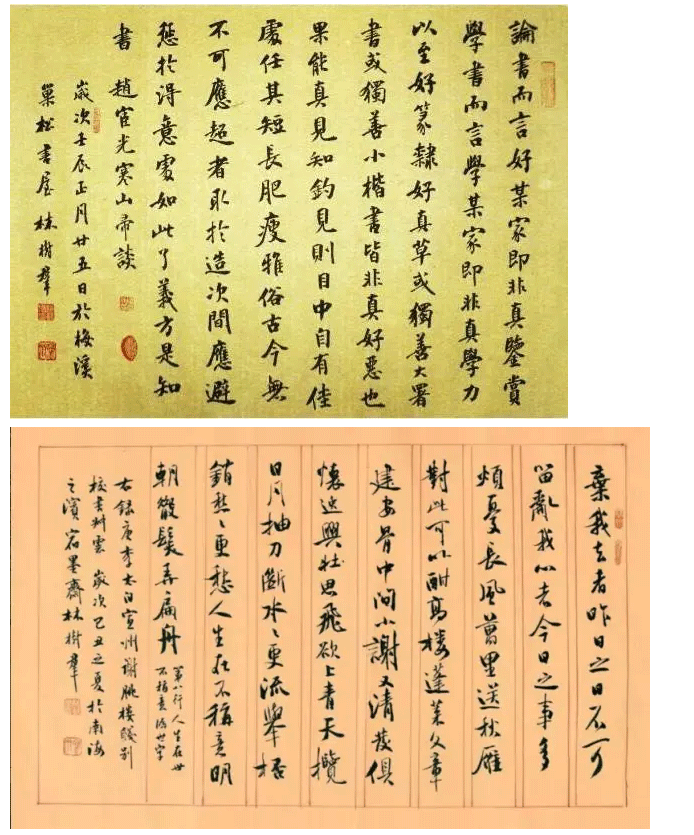 論書而言好某家即非真鑒賞
學書而言學某家即非真學力
以至好篆隸好真草或獨善大署
書或獨善小楷書皆非真好惡也
果能真見知鈞見則目中自有佳
處任其短長肥瘦雅俗古今無
不可應超者取於造次間應避
態於得意處如此了義方是知
書 趙宧光寒山帚談
歲次壬辰正月廿五日於梅溪
巢松書屋 林樹群
棄我去者昨日之日不可
留亂我心者今日之事多
煩憂長風萬里送秋雁
對此可以酣高樓蓬萊文章
建安骨中間小謝又清發俱
懷逸興壯思飛欲上青天攬
日月抽刀斷水〻更流舉杯
銷愁〻更愁人生在不稱意明
朝散髮弄扁舟
第八行人生在世
不稱意漏世字
右錄唐李太白宣州謝朓樓餞別
校書叔雲 歲次己丑之夏於南海
之濱宿墨齋林樹群